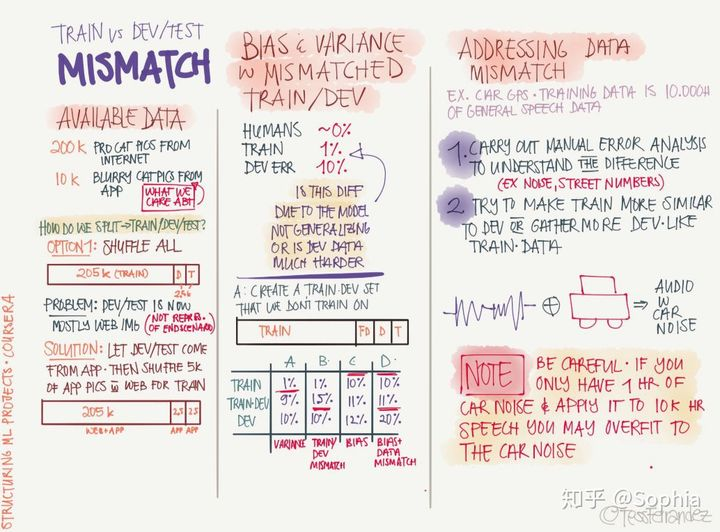 TRAIN vs DEV/TEST
MISMATCH
AVAILABLE DATA
200 k PRO CAT PICS FROM
INTERNET
10 k BLURRY CAT PICS FROM
APP
WHAT WE
CARE ABT
HOW DO WE SPLIT → TRAIN/DEV/TEST?
OPTION 1: SHUFFLE ALL
205 k (TRAIN) D T
PROBLEM: DEV/TEST IS NOW
MOSTLY WEB IMG (NOT REPRES.
OF END SCENARIO)
SOLUTION: LET DEV/TEST COME
FROM APP. THEN SHUFFLE 5K
OF APP PICS W WEB FOR TRAIN
205 k 2.5 2.5
WEB+APP APP APP
STRUCTURING ML PROJECTS · COURSERA
BIAS & VARIANCE
W MISMATCHED
TRAIN/DEV
HUMANS ~0%
TRAIN 1%
DEV ERR 10%
IS THIS DIFF
DUE TO THE MODEL
NOT GENERALIZING
OR IS DEV DATA
MUCH HARDER
A: CREATE A TRAIN-DEV SET
THAT WE DON'T TRAIN ON
TRAIN D T
A B C D
TRAIN 1% 1% 10% 10%
TRAIN-DEV 9% 15% 11% 11%
DEV 10% 10% 12% 20%
VARIANCE TRAIN/ BIAS BIAS+
DEV DATA
MISMATCH MISMATCH
ADDRESSING DATA
MISMATCH
EX. CAR GPS · TRAINING DATA IS 10.000H
OF GENERAL SPEECH DATA
1. CARRY OUT MANUAL ERROR ANALYSIS
TO UNDERSTAND THE DIFFERENCE
(EX NOISE, STREET NUMBERS)
2. TRY TO MAKE TRAIN MORE SIMILAR
TO DEV OR GATHER MORE DEV-LIKE
TRAIN-DATA
AUDIO
W CAR
NOISE
NOTE BE CAREFUL · IF YOU
ONLY HAVE 1 HR OF
CAR NOISE & APPLY IT TO 10K HR
SPEECH YOU MAY OVERFIT TO
THE CAR NOISE
知乎 @Sophia
@TessFerrandez